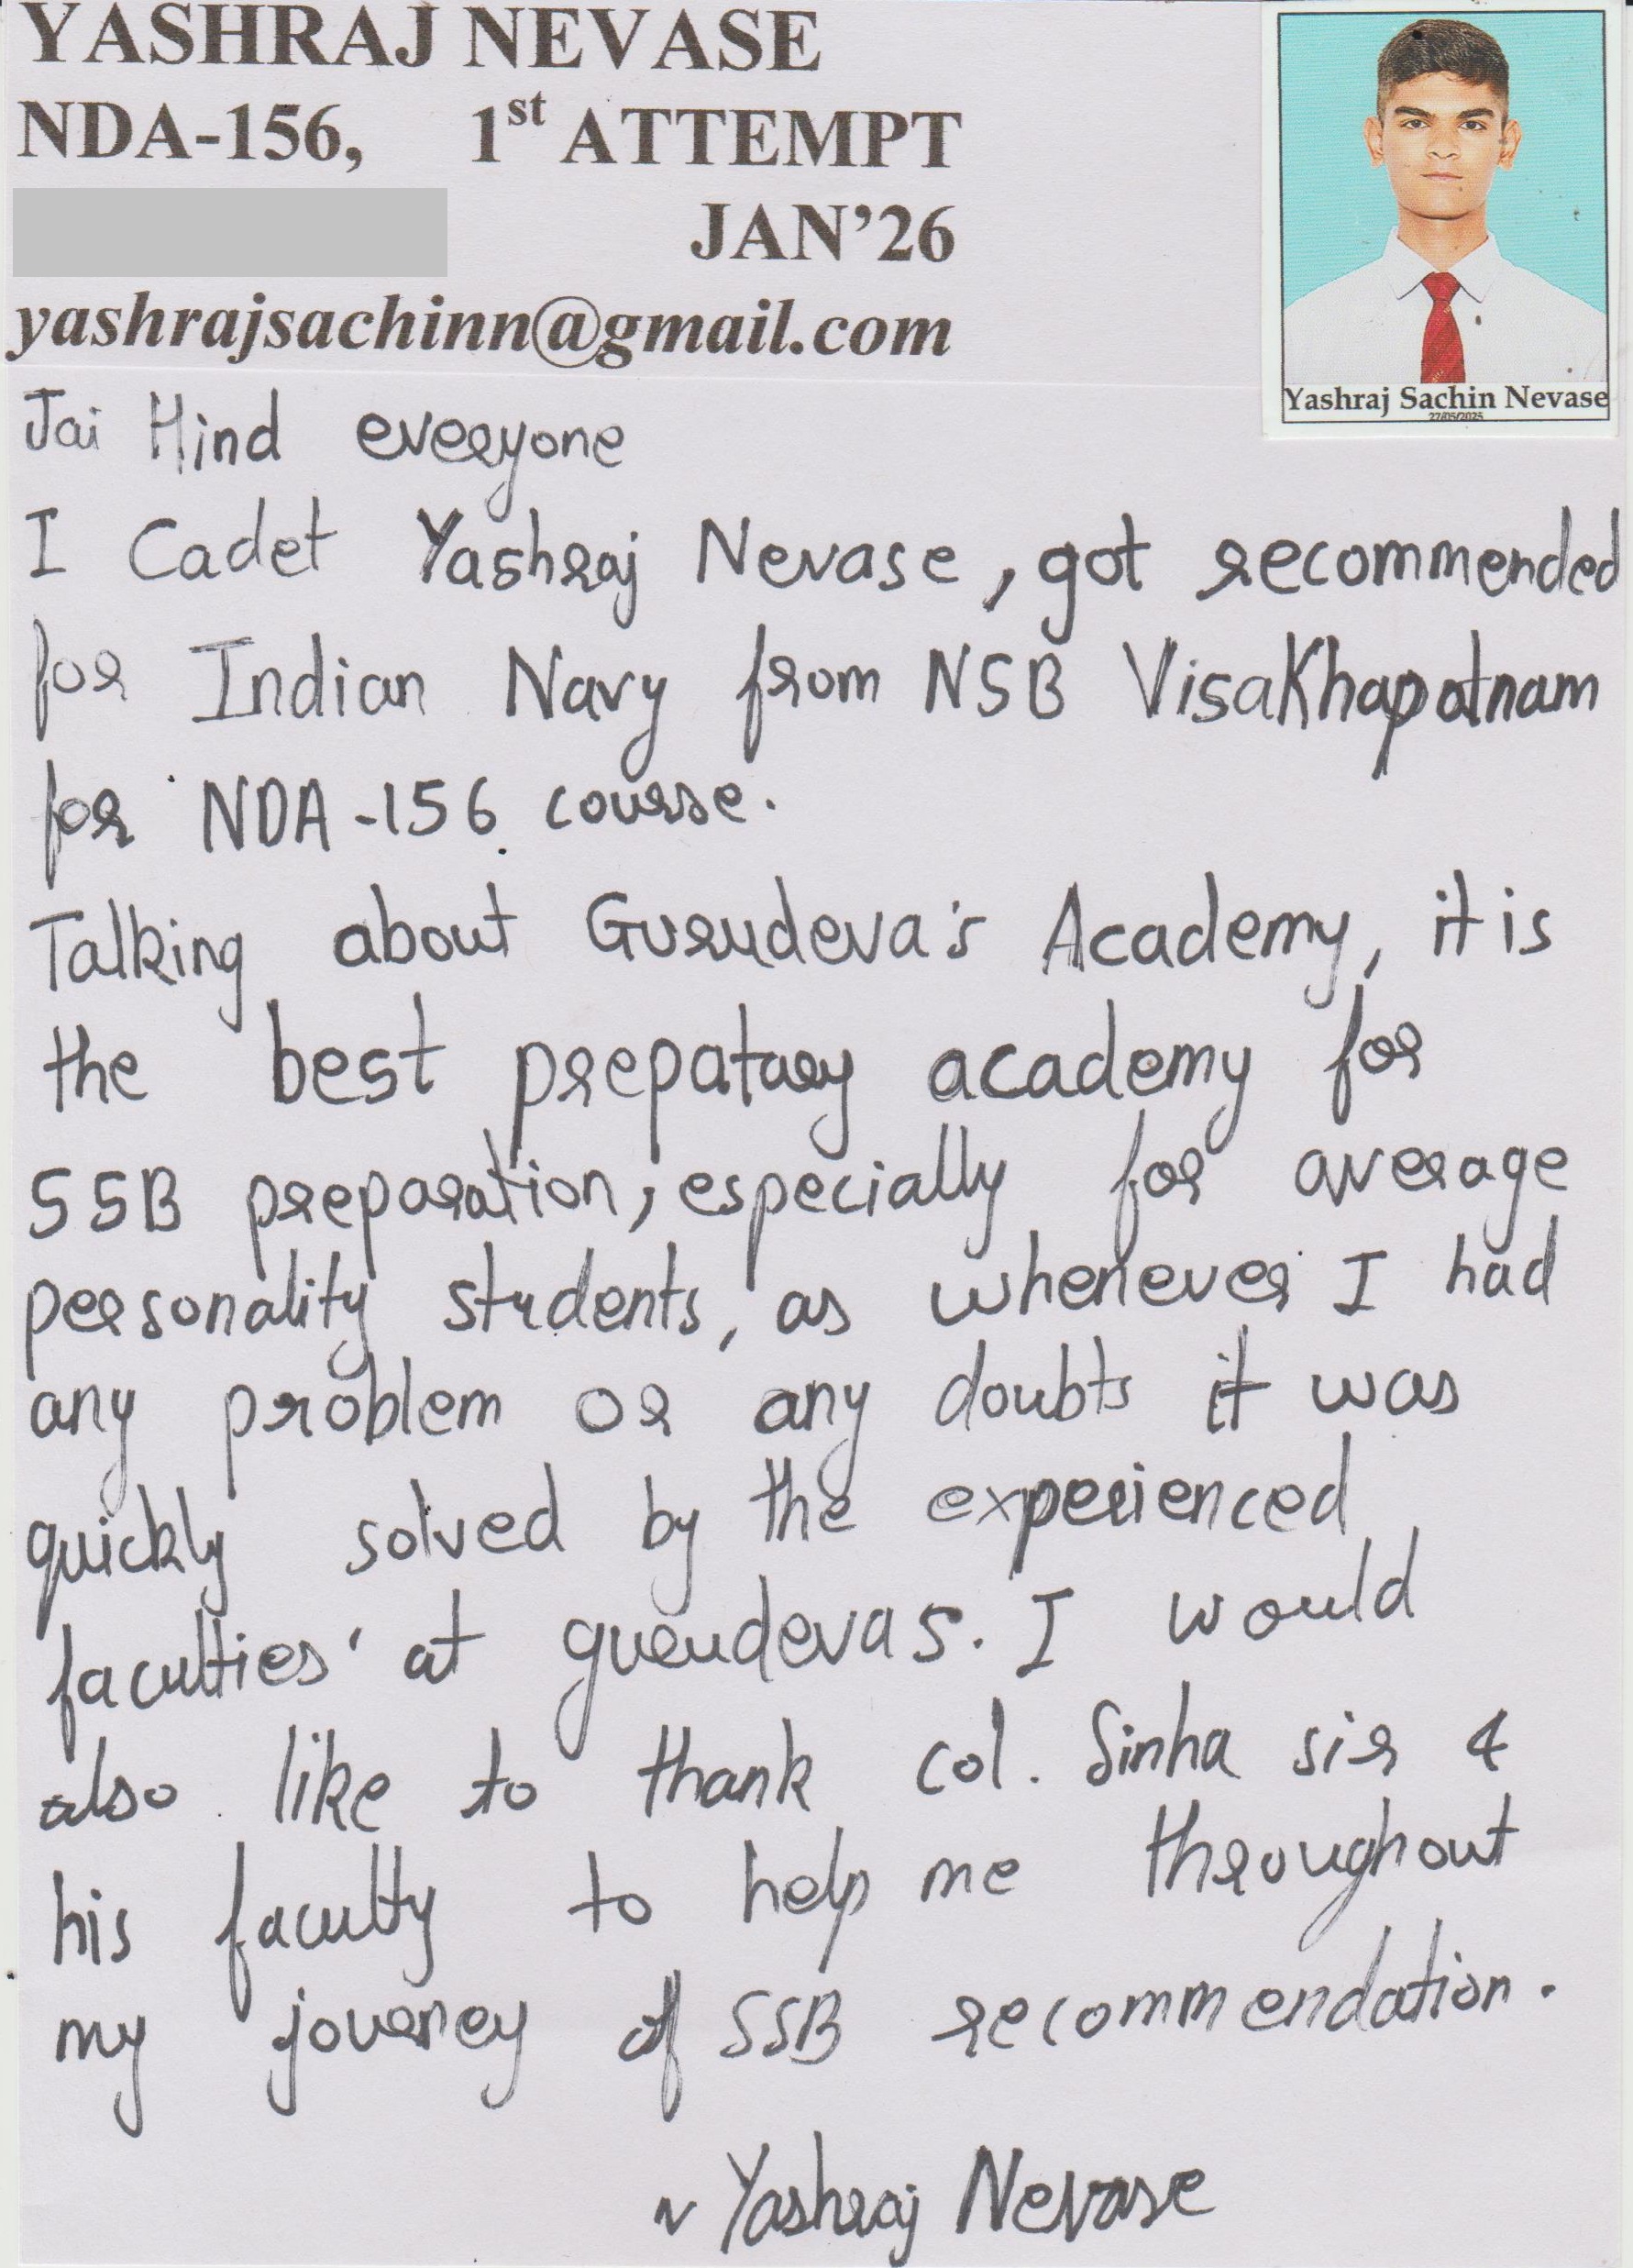 YASHRAJ NEVASE
NDA-156, 1st ATTEMPT
JAN'26
yashrajsachinn@gmail.com
Yashraj Sachin Nevase
27/05/2025
Jai Hind everyone
I Cadet Yashraj Nevase, got recommended
for Indian Navy from NSB VisaKhapatnam
for NDA-156 course.
Talking about Gurudeva's Academy, it is
the best prepatary academy for
SSB preparation, especially for average
personality students, as whenever I had
any problem or any doubts it was
quickly solved by the experienced
faculties' at gurudevas. I would
also like to thank col. Sinha sir &
his faculty to help me throughout
my journey of SSB recommendation.
~ Yashraj Nevase